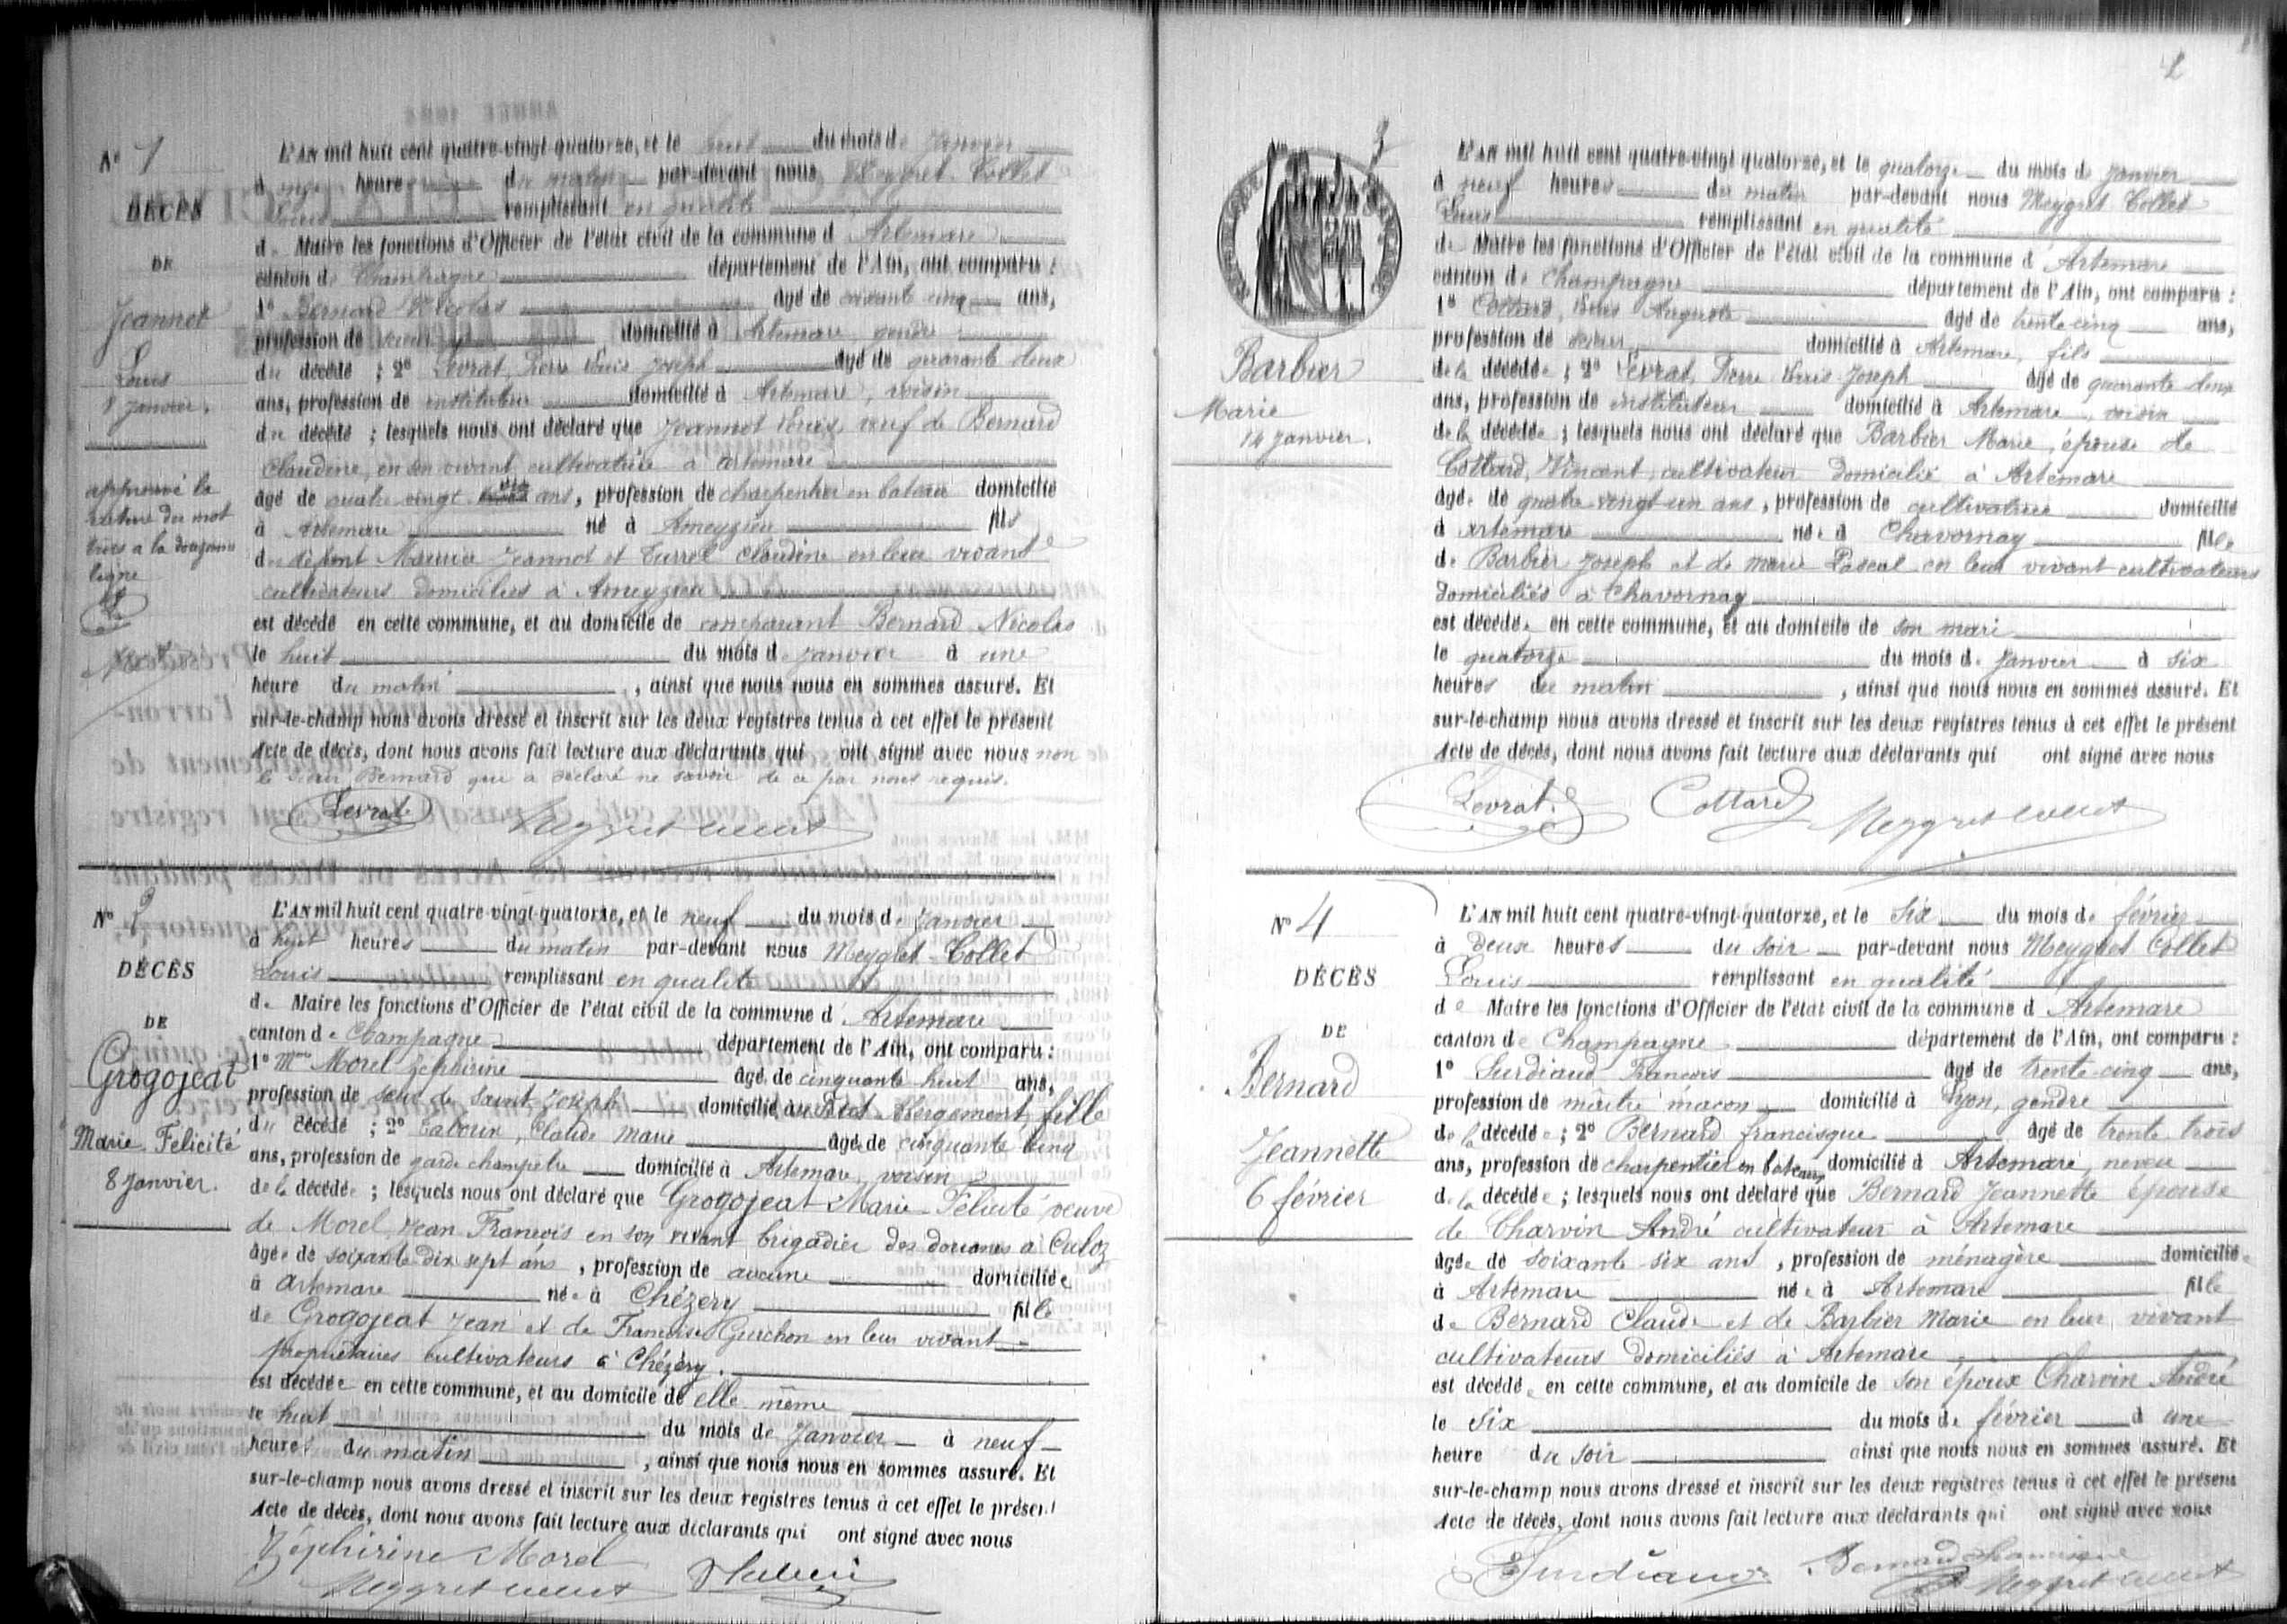 N° 1
DÉCÈS
DE
Jeannot
Louis
8 Janvier.
approuvé la
rature du mot
trois a la douzième
ligne
L'AN mil huit cent quatre-vingt-quatorze, et le huit du mois de Janvier
à onze heures du matin par-devant nous Meygret-Collet
Louis remplissant en qualité
de Maire les fonctions d'Officier de l'état civil de la commune d'Artemare
canton de Champagne département de l'Ain, ont comparu :
1° Bernard Nicolas âgé de soixante cinq ans,
profession de domicilié à Artemare, gendre
du décédé ; 2° Levrat, Pierre Louis Joseph âgé de quarante deux
ans, profession de instituteur domicilié à Artemare, voisin
du décédé ; lesquels nous ont déclaré que Jeannot Louis, veuf de Bernard
Claudine, en son vivant cultivatrice à Artemare
âgé de quatre vingt ans, profession de charpentier en bateau domicilié
à Artemare né à Ameyzieu fils
de défunt Maurice Jeannot et Turrel Claudine en leur vivant
cultivateurs domiciliés à Ameyzieu
est décédé en cette commune, et au domicile de comparant Bernard Nicolas
le huit du mois de Janvier à une
heure du matin, ainsi que nous nous en sommes assuré. Et
sur-le-champ nous avons dressé et inscrit sur les deux registres tenus à cet effet le présent
Acte de décès, dont nous avons fait lecture aux déclarants qui ont signé avec nous non
le sieur Bernard qui a déclaré ne savoir de ce par nous requis.
Levrat Meygret Collet
N° 2
DÉCÈS
DE
Grogojeat
Marie Félicité
8 Janvier.
L'AN mil huit cent quatre-vingt-quatorze, et le neuf du mois de Janvier
à huit heures du matin par-devant nous Meygret-Collet
Louis remplissant en qualité
de Maire les fonctions d'Officier de l'état civil de la commune d'Artemare
canton de Champagne département de l'Ain, ont comparu :
1° Mme Morel Zéphirine âgé de cinquante huit ans,
profession de sœur de Saint Joseph domicilié au Hergement, fille
du décédé ; 2° Taboux, Claude Marie âgé de cinquante cinq
ans, profession de garde champêtre domicilié à Artemare, voisin
de la décédée ; lesquels nous ont déclaré que Grogojeat Marie Félicité veuve
de Morel, Jean François en son vivant brigadier des douanes à Culoz
âgée de soixante dix sept ans, profession de aucune domiciliée
à Artemare née à Chézery fille
de Grogojeat Jean et de Françoise Gurchon en leur vivant
propriétaires cultivateurs à Chézery.
est décédée en cette commune, et au domicile de elle même
le huit du mois de Janvier à neuf
heures du matin, ainsi que nous nous en sommes assuré. Et
sur-le-champ nous avons dressé et inscrit sur les deux registres tenus à cet effet le présent
Acte de décès, dont nous avons fait lecture aux déclarants qui ont signé avec nous
Zéphirine Morel
Meygret Collet
2
3
Barbier
Marie
14 Janvier.
L'AN mil huit cent quatre-vingt-quatorze, et le quatorze du mois de Janvier
à neuf heures du matin par-devant nous Meygret Collet
Louis remplissant en qualité
de Maire les fonctions d'Officier de l'état civil de la commune d'Artemare
canton de Champagne département de l'Ain, ont comparu :
1° Cottard, Louis Auguste âgé de trente-cinq ans,
profession de domicilié à Artemare, fils
de la décédée ; 2° Levrat, Pierre Louis Joseph âgé de quarante deux
ans, profession de instituteur domicilié à Artemare, voisin
de la décédée ; lesquels nous ont déclaré que Barbier Marie, épouse de
Cottard, Vincent, cultivateur domicilié à Artemare
âgée de quatre vingt-un ans, profession de cultivatrice domicilié
à Artemare née à Chavornay fille
de Barbier Joseph et de Marie Pascal en leur vivant cultivateurs
domiciliés à Chavornay
est décédée en cette commune, et au domicile de son mari
le quatorze du mois de Janvier à six
heures du matin, ainsi que nous nous en sommes assuré. Et
sur-le-champ nous avons dressé et inscrit sur les deux registres tenus à cet effet le présent
Acte de décès, dont nous avons fait lecture aux déclarants qui ont signé avec nous
Levrat Cottard Meygret Collet
N° 4
DÉCÈS
DE
Bernard
Jeannette
6 février
L'AN mil huit cent quatre-vingt-quatorze, et le six du mois de février
à deux heures du soir par-devant nous Meygret Collet
Louis remplissant en qualité
de Maire les fonctions d'Officier de l'état civil de la commune d'Artemare
canton de Champagne département de l'Ain, ont comparu :
1° Surdiaud François âgé de trente-cinq ans,
profession de maître maçon domicilié à Lyon, gendre
de la décédée ; 2° Bernard Francisque âgé de trente trois
ans, profession de charpentier en bateaux domicilié à Artemare, neveu
de la décédée ; lesquels nous ont déclaré que Bernard Jeannette épouse
de Charvin André cultivateur à Artemare
âgée de soixante six ans, profession de ménagère domiciliée
à Artemare née à Artemare fille
de Bernard Claude et de Barbier Marie en leur vivant
cultivateurs domiciliés à Artemare
est décédée en cette commune, et au domicile de son époux Charvin André
le six du mois de février à une
heure du soir ainsi que nous nous en sommes assuré. Et
sur-le-champ nous avons dressé et inscrit sur les deux registres tenus à cet effet le présent
Acte de décès, dont nous avons fait lecture aux déclarants qui ont signé avec nous
Surdiaud Bernard Francisque
Meygret Collet